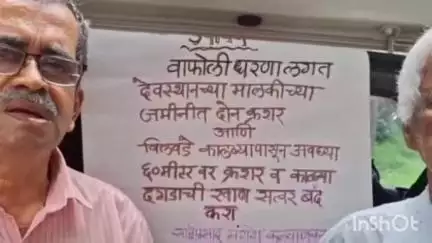 वाफोली धरणा लगत
देवस्थानच्या मालकीच्या
जमीनीत दोन क्रशर
आणि
विलवडे कालव्यापासून अवघ्या
६०मीटर वर क्रशर व काळ्या
दगडाची खाण सत्वर बंद
करा
InShOt